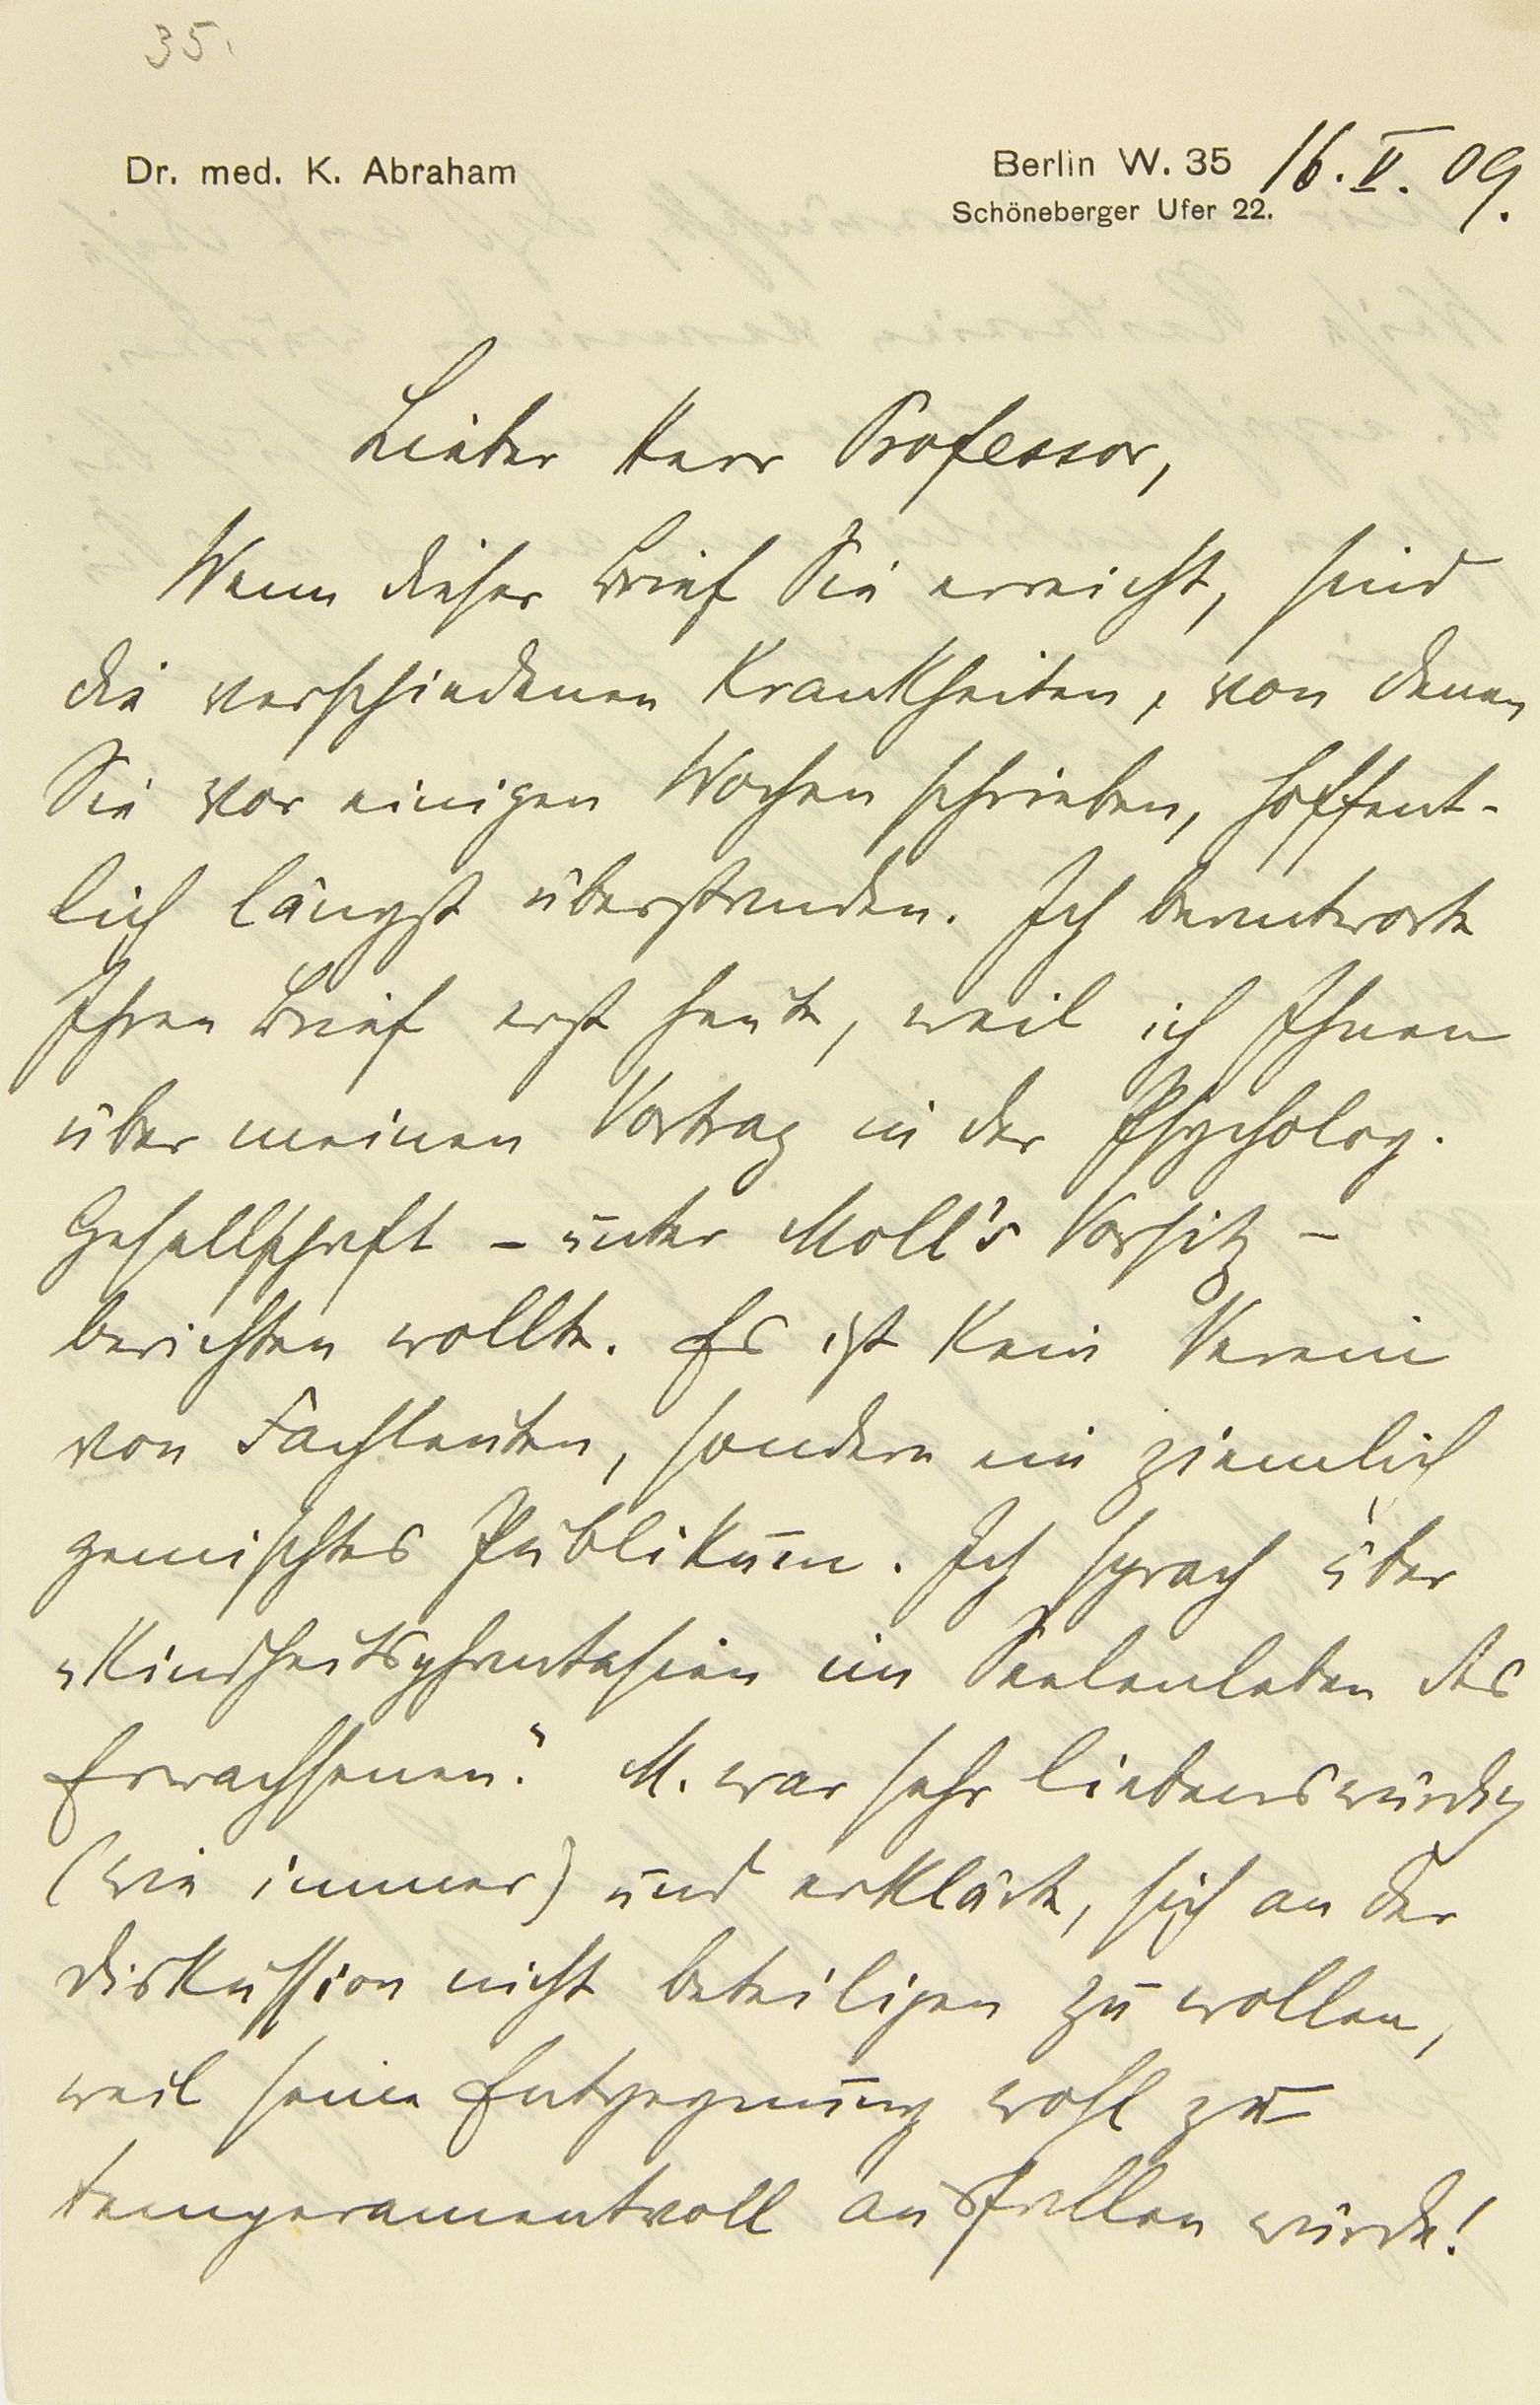 35.
Dr. med. K. Abraham
Berlin W. 35 16. V. 09.
Schöneberger Ufer 22.
Lieber Herr Professor,
Wenn dieser Brief Sie erreicht, sind
die verschiedenen Krankheiten, von denen
Sie vor einigen Wochen schrieben, hoffent-
lich längst überstanden. Ich beantworte
Ihren Brief erst heute, weil ich Ihnen
über meinen Vortrag in der Psycholog.
Gesellschaft – unter Moll's Vorsitz –
berichten wollte. Es ist kein Verein
von Fachleuten, sondern ein ziemlich
gemischtes Publikum. Ich sprach über
„Kindheitsphantasien im Seelenleben des
Erwachsenen.“ M. war sehr liebenswürdig
(wie immer) und erklärte, sich an der
Diskussion nicht beteiligen zu wollen,
weil seine Entgegnung wohl zu
temperamentvoll ausfallen würde!